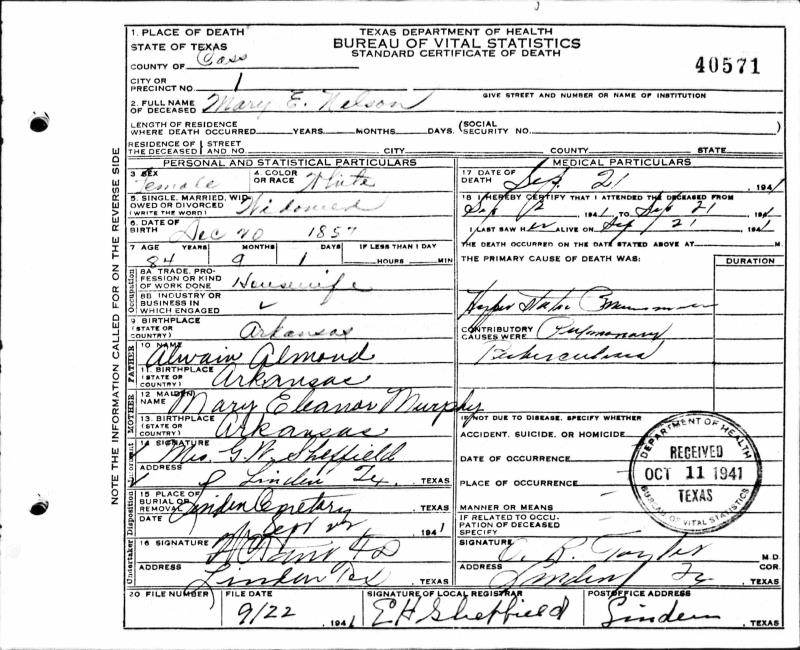 TEXAS DEPARTMENT OF HEALTH
BUREAU OF VITAL STATISTICS
STANDARD CERTIFICATE OF DEATH
40571
1. PLACE OF DEATH
STATE OF TEXAS
COUNTY OF Cass
CITY OR
PRECINCT NO. 1
GIVE STREET AND NUMBER OR NAME OF INSTITUTION
2. FULL NAME
OF DECEASED Mary E. Nelson
LENGTH OF RESIDENCE
WHERE DEATH OCCURRED YEARS MONTHS DAYS. (SOCIAL SECURITY NO. )
RESIDENCE OF THE DECEASED STREET AND NO. CITY COUNTY STATE
PERSONAL AND STATISTICAL PARTICULARS
3 SEX Female
4. COLOR OR RACE White
5. SINGLE, MARRIED, WIDOWED OR DIVORCED (WRITE THE WORD) Widowed
6. DATE OF BIRTH Dec 20 1857
7 AGE YEARS MONTHS DAYS IF LESS THAN 1 DAY
84 9 1 HOURS MIN
Occupation
8A TRADE, PROFESSION OR KIND OF WORK DONE Housewife
8B INDUSTRY OR BUSINESS IN WHICH ENGAGED
9 BIRTHPLACE (STATE OR COUNTRY) Arkansas
FATHER
10 NAME Alwain Almond
11. BIRTHPLACE (STATE OR COUNTRY) Arkansas
MOTHER
12 MAIDEN NAME Mary Eleanor Murphy
13. BIRTHPLACE (STATE OR COUNTRY) Arkansas
14 SIGNATURE Mrs. G.W. Sheffield
ADDRESS Linden Tx. TEXAS
Disposition
15 PLACE OF BURIAL OR REMOVAL Linden Cemetary
DATE Sept 22, 1941
Undertaker
16 SIGNATURE
ADDRESS Linden Tex TEXAS
MEDICAL PARTICULARS
17 DATE OF DEATH Sep. 21 1941
18 I HEREBY CERTIFY THAT I ATTENDED THE DECEASED FROM
Sep 12 1941 TO Sep 21 1941
I LAST SAW her ALIVE ON Sep 21 1941
THE DEATH OCCURRED ON THE DATE STATED ABOVE AT M.
THE PRIMARY CAUSE OF DEATH WAS: DURATION
CONTRIBUTORY CAUSES WERE Pulmonary
Tuberculosis
IF NOT DUE TO DISEASE, SPECIFY WHETHER
ACCIDENT, SUICIDE, OR HOMICIDE
DATE OF OCCURRENCE
PLACE OF OCCURRENCE
MANNER OR MEANS
IF RELATED TO OCCUPATION OF DECEASED SPECIFY
DEPARTMENT OF HEALTH
RECEIVED
OCT 11 1941
TEXAS
BUREAU OF VITAL STATISTICS
SIGNATURE O. R. Taylor M.D.
COR.
ADDRESS Linden, Tx TEXAS
20 FILE NUMBER
FILE DATE 9/22 1941
SIGNATURE OF LOCAL REGISTRAR EH Sheffield
POSTOFFICE ADDRESS Linden, TEXAS
NOTE THE INFORMATION CALLED FOR ON THE REVERSE SIDE